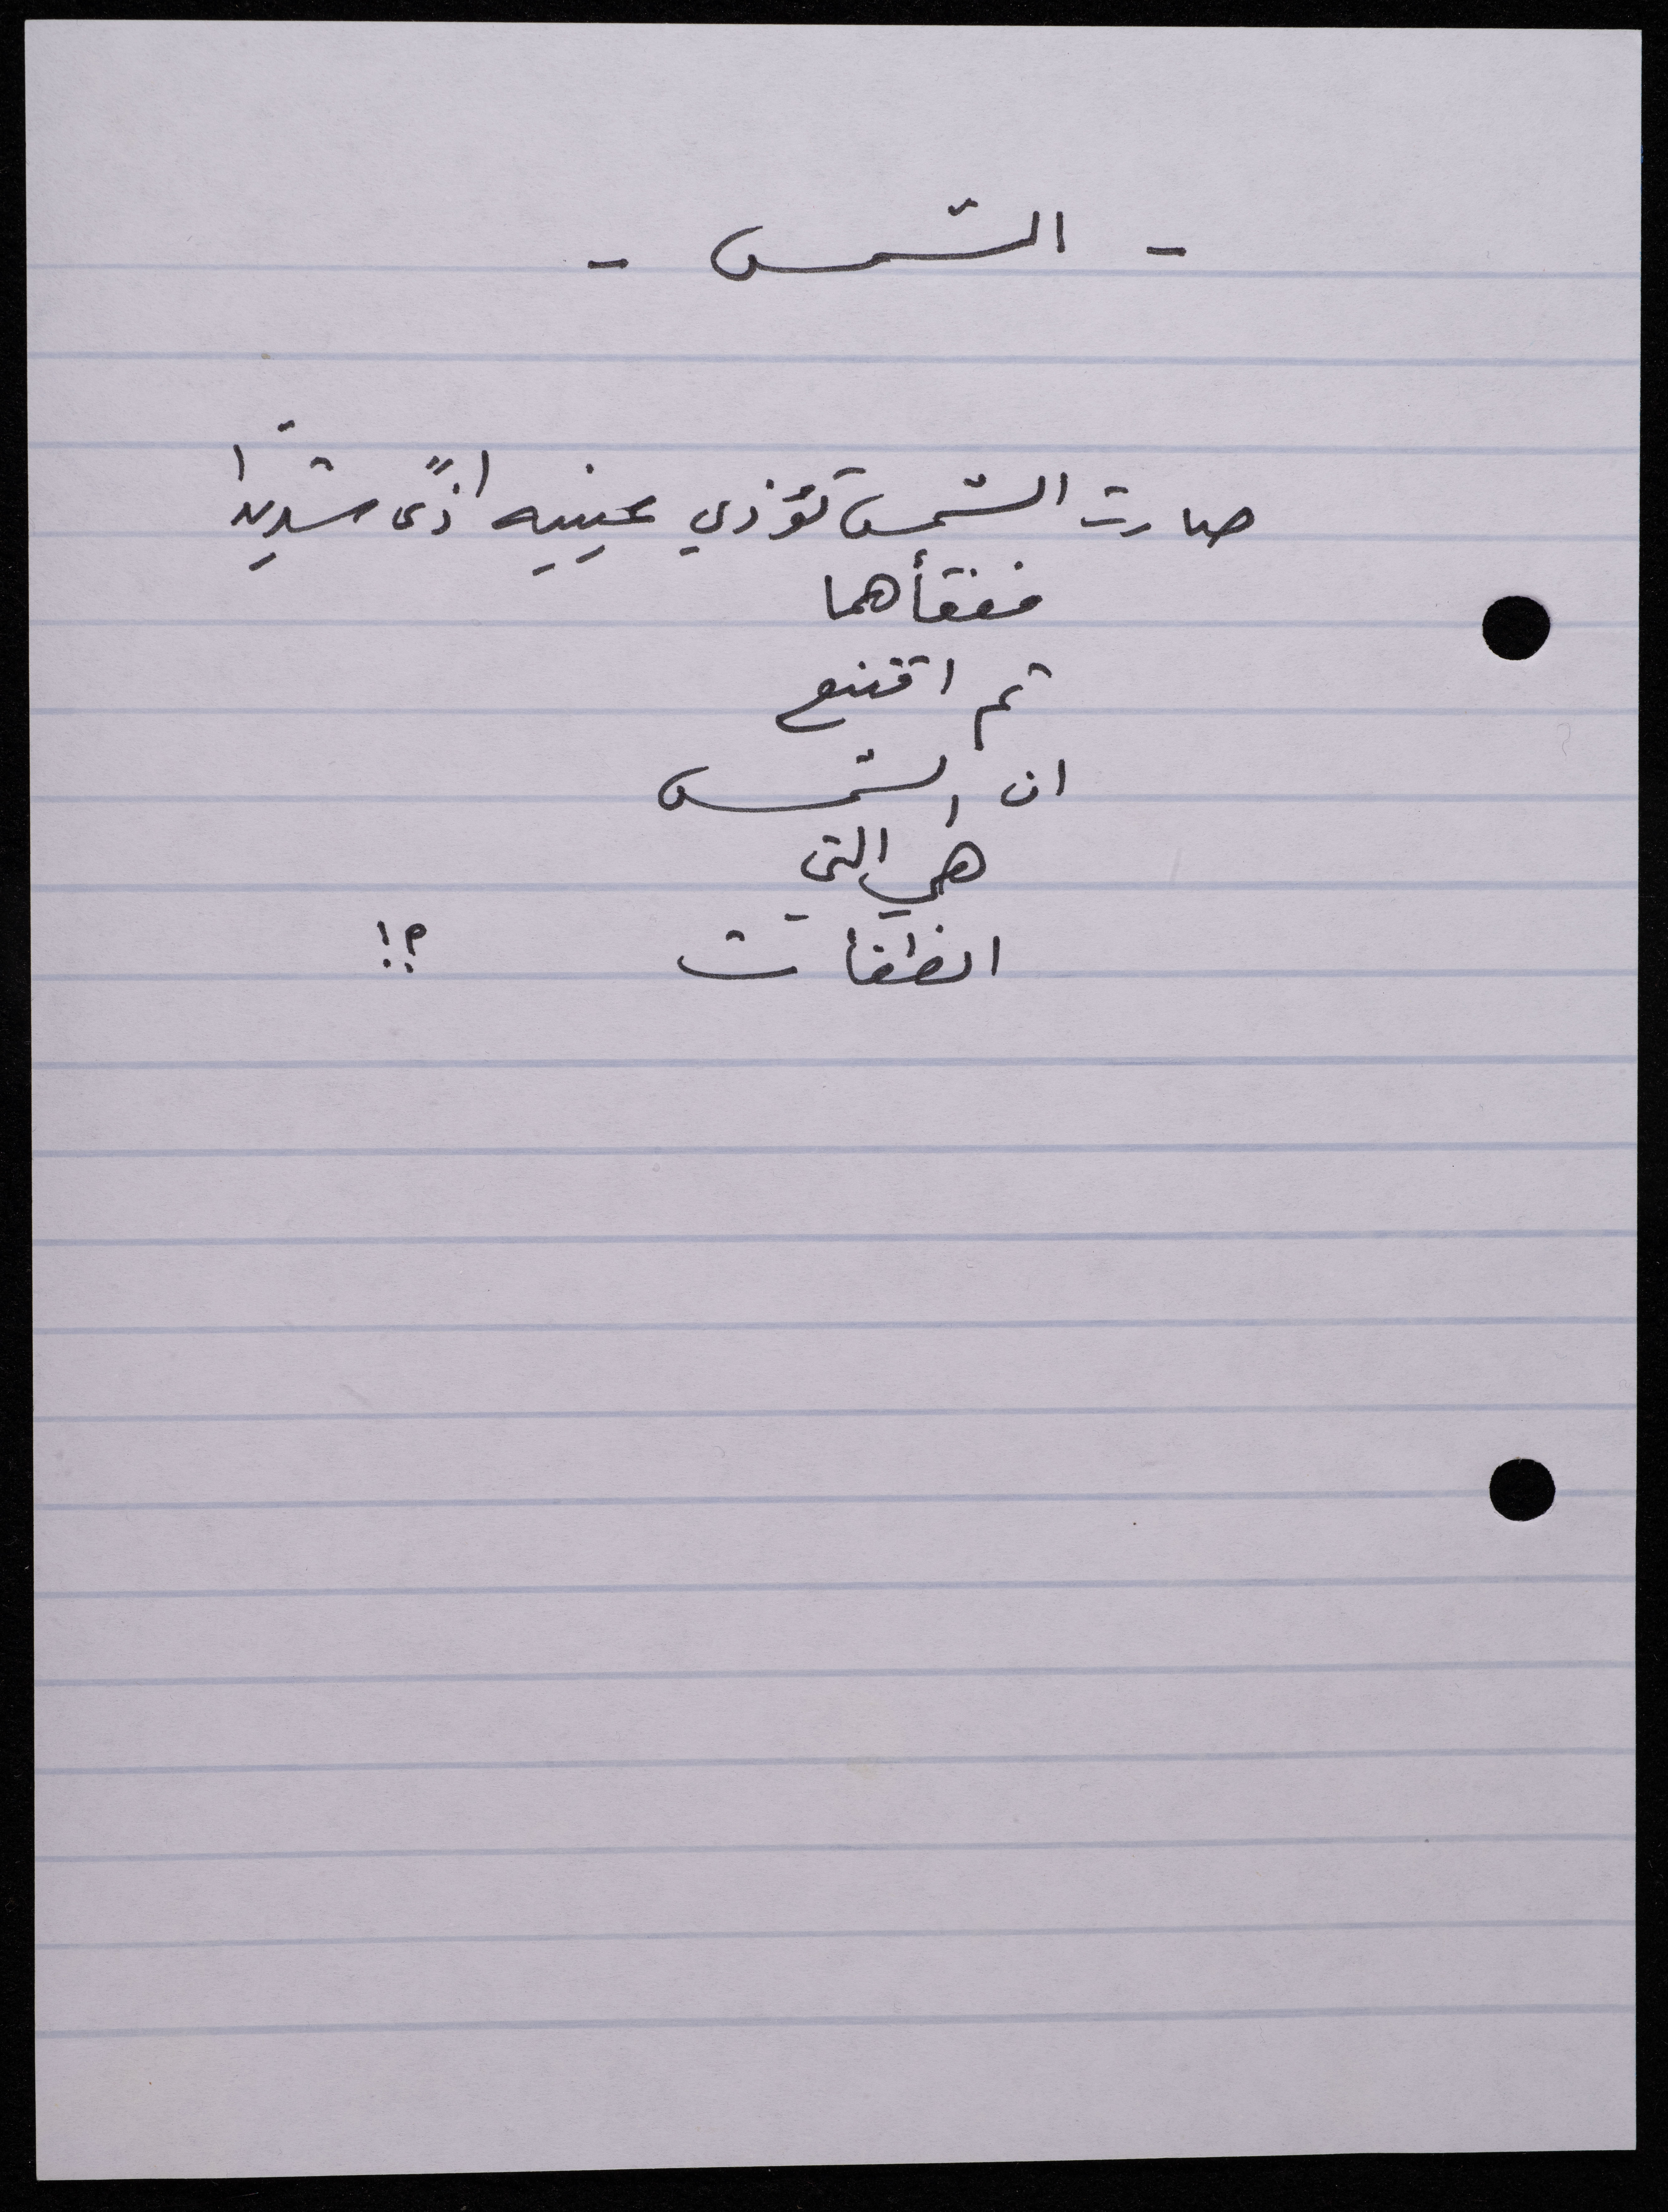 - الشمس -
صارت الشمس تؤذي عينيه اذًى شديدا
ففقأهما
ثم اقتنع
ان الشمس
هي التي
انطفأت ؟!